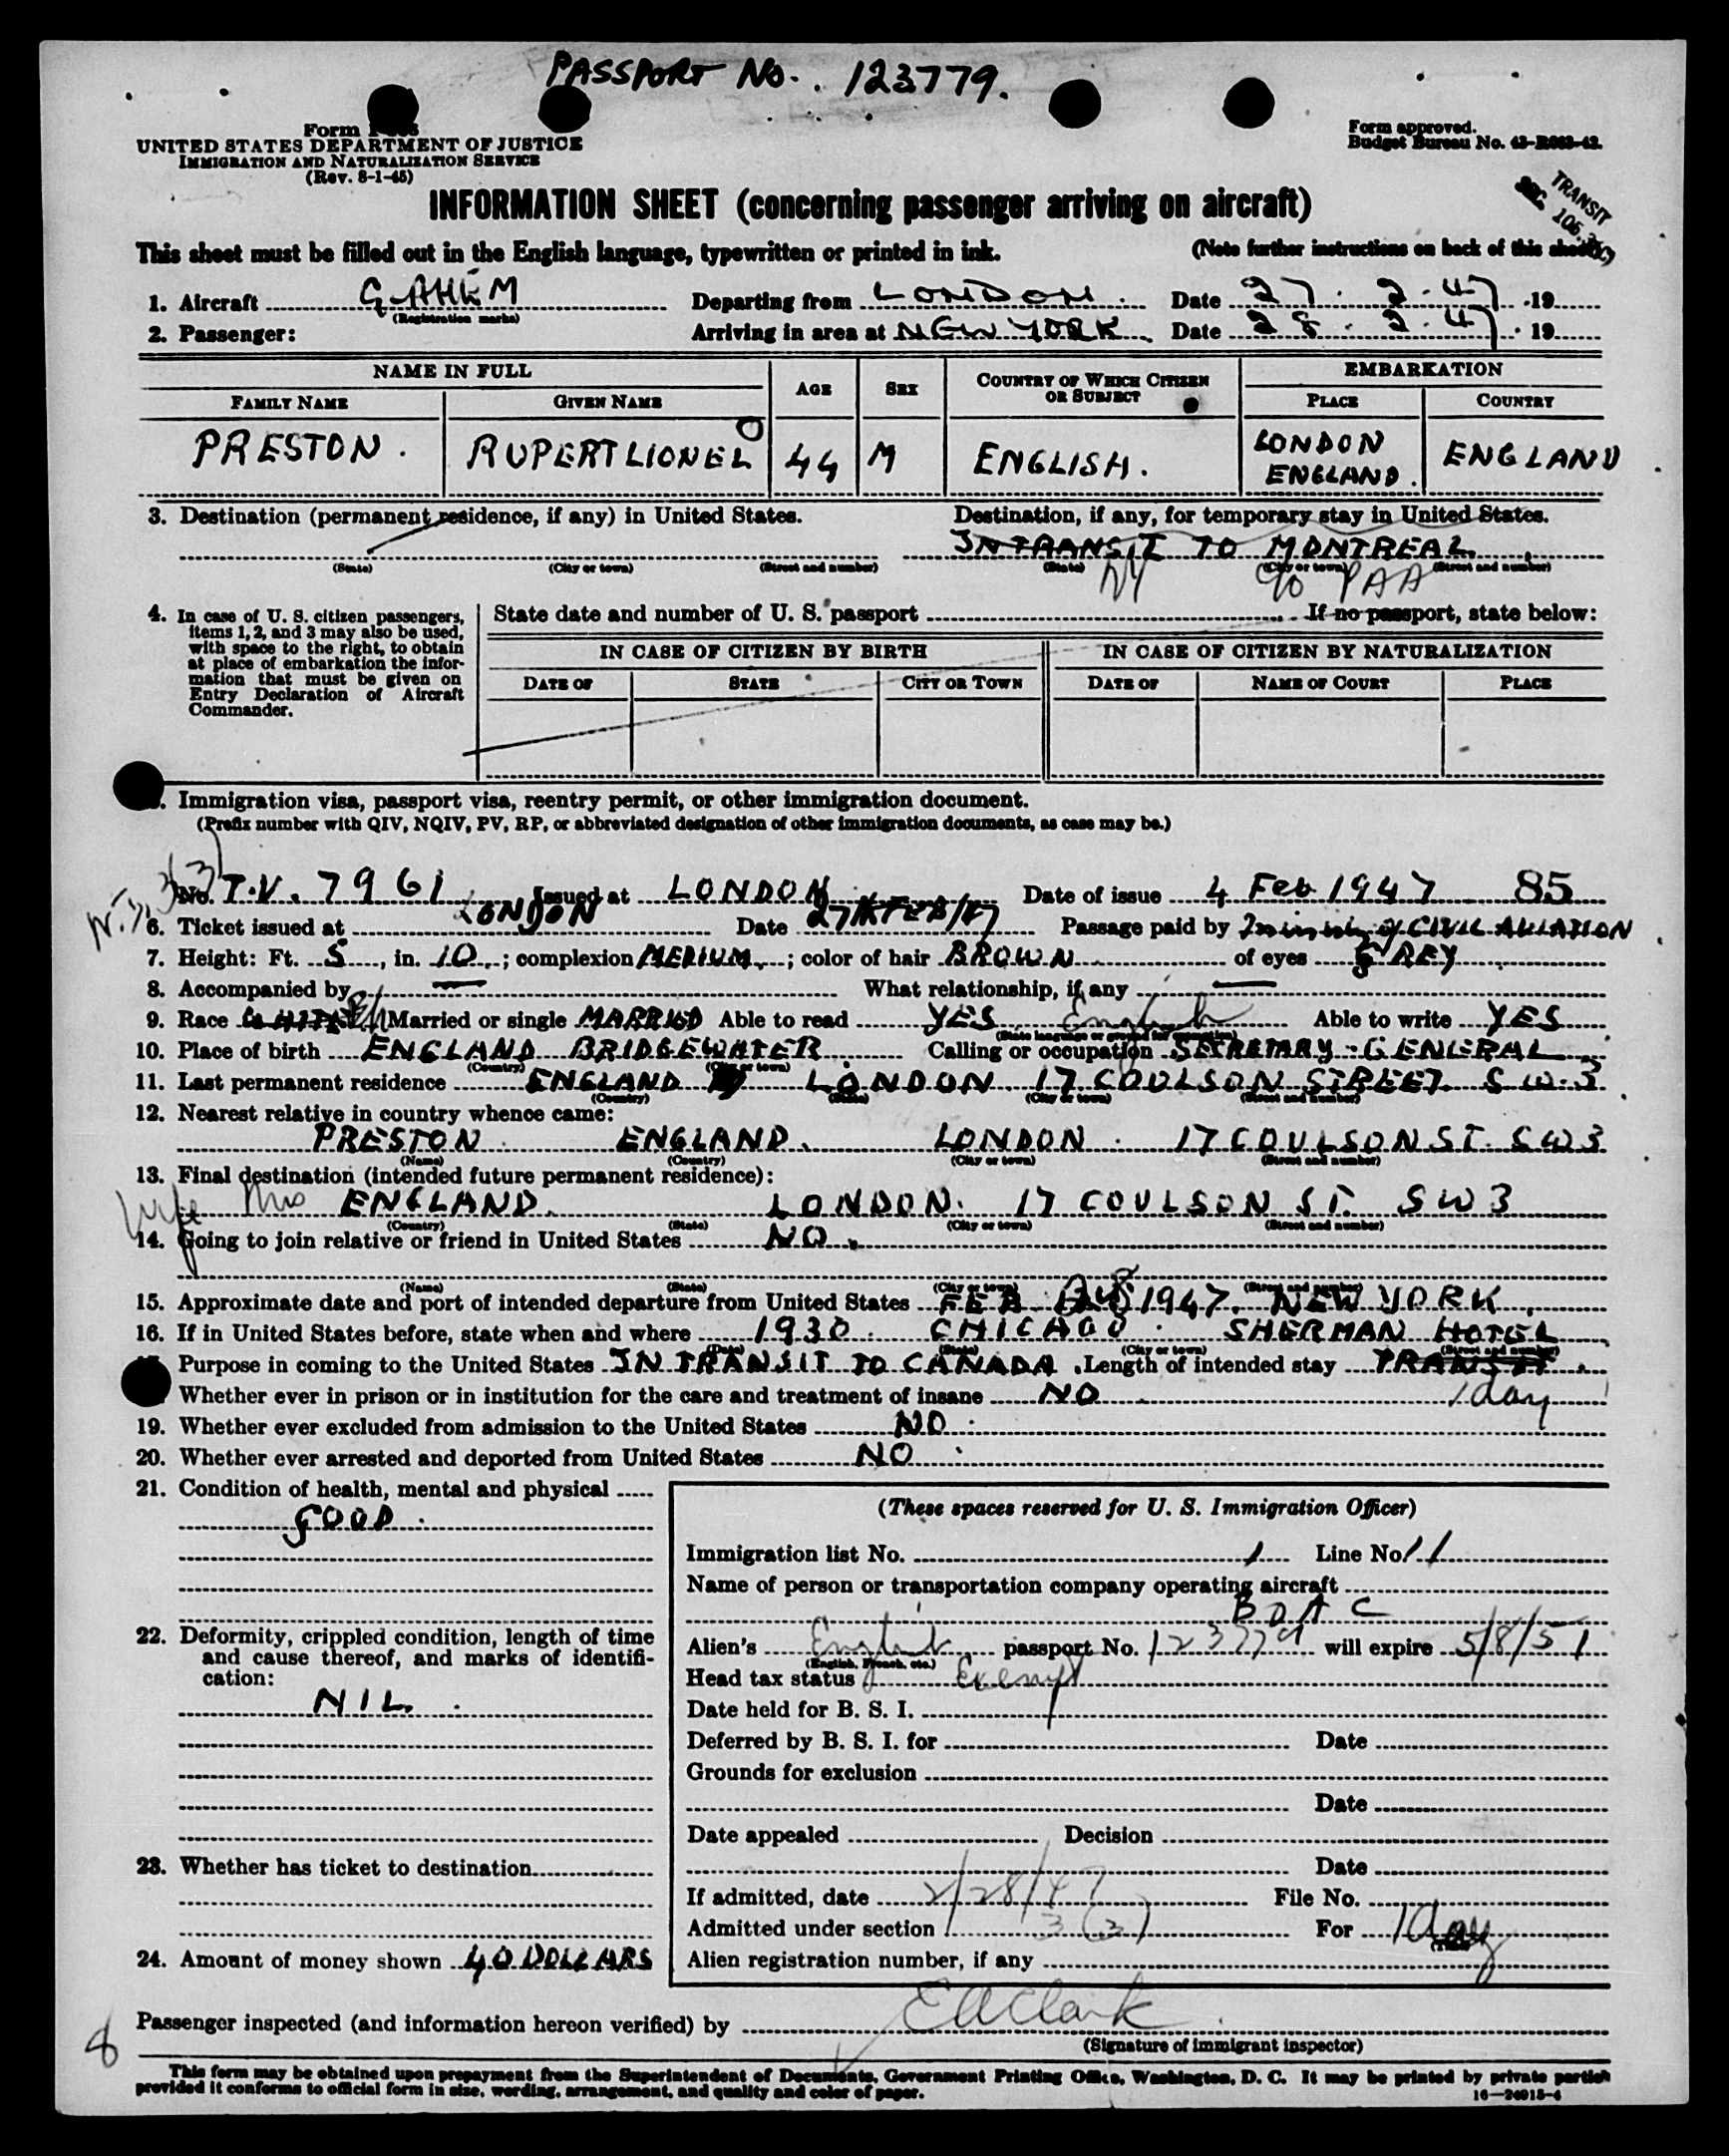 PASSPORT NO. 123779.
Form
UNITED STATES DEPARTMENT OF JUSTICE
IMMIGRATION AND NATURALIZATION SERVICE
(Rev. 8-1-45)
Form approved.
Budget Bureau No. 43-R063-42.
TRANSIT
SEC. 106.3(c)
INFORMATION SHEET (concerning passenger arriving on aircraft)
This sheet must be filled out in the English language, typewritten or printed in ink. (Note further instructions on back of this sheet)
1. Aircraft G-AHEM Departing from LONDON Date 27.2.47 19
(Registration marks)
2. Passenger: Arriving in area at NEW YORK Date 28.2.47 19
NAME IN FULL AGE SEX COUNTRY OF WHICH CITIZEN OR SUBJECT EMBARKATION
FAMILY NAME GIVEN NAME PLACE COUNTRY
PRESTON. RUPERT LIONEL 44 M ENGLISH. LONDON ENGLAND. ENGLAND
3. Destination (permanent residence, if any) in United States. Destination, if any, for temporary stay in United States.
IN TRANSIT TO MONTREAL
(State) (City or town) (Street and number) (State) (City or town) (Street and number)
NY c/o PAA
4. In case of U. S. citizen passengers, items 1, 2, and 3 may also be used, with space to the right, to obtain at place of embarkation the information that must be given on Entry Declaration of Aircraft Commander.
State date and number of U. S. passport If no passport, state below:
IN CASE OF CITIZEN BY BIRTH IN CASE OF CITIZEN BY NATURALIZATION
DATE OF STATE CITY OR TOWN DATE OF NAME OF COURT PLACE
Immigration visa, passport visa, reentry permit, or other immigration document.
(Prefix number with QIV, NQIV, PV, RP, or abbreviated designation of other immigration documents, as case may be.)
No. T.V. 7961 Issued at LONDON Date of issue 4 Feb 1947 85
6. Ticket issued at LONDON Date 27th FEB/47 Passage paid by Ministry of CIVIL AVIATION
7. Height: Ft. 5, in. 10; complexion MEDIUM; color of hair BROWN of eyes GREY
8. Accompanied by — What relationship, if any —
9. Race WHITE Married or single MARRIED Able to read YES English Able to write YES
(State language or ground for exemption)
10. Place of birth ENGLAND BRIDGEWATER Calling or occupation SECRETARY-GENERAL
(Country) (City or town)
11. Last permanent residence ENGLAND LONDON 17 COULSON STREET S W.3
(Country) (State) (City or town) (Street and number)
12. Nearest relative in country whence came:
PRESTON ENGLAND. LONDON. 17 COULSON ST. SW3
(Name) (Country) (City or town) (Street and number)
13. Final destination (intended future permanent residence):
wife Mrs ENGLAND. LONDON. 17 COULSON ST. SW3
(Country) (State) (City or town) (Street and number)
14. Going to join relative or friend in United States NO.
(Name) (State) (City or town) (Street and number)
15. Approximate date and port of intended departure from United States FEB 28 1947. NEW YORK.
16. If in United States before, state when and where 1930. CHICAGO. SHERMAN HOTEL
(Date) (State) (City or town) (Street and number)
Purpose in coming to the United States IN TRANSIT TO CANADA. Length of intended stay TRANSIT.
Whether ever in prison or in institution for the care and treatment of insane NO 1 day
19. Whether ever excluded from admission to the United States NO.
20. Whether ever arrested and deported from United States NO.
21. Condition of health, mental and physical
GOOD.
22. Deformity, crippled condition, length of time and cause thereof, and marks of identification:
NIL.
23. Whether has ticket to destination
24. Amount of money shown 40 DOLLARS
(These spaces reserved for U. S. Immigration Officer)
Immigration list No. 1 Line No. 11
Name of person or transportation company operating aircraft
BOAC
Alien's English passport No. 123779 will expire 5/8/51
(English, French, etc.)
Head tax status Exempt
Date held for B. S. I.
Deferred by B. S. I. for Date
Grounds for exclusion
Date
Date appealed Decision
Date
If admitted, date 2/28/47 File No.
Admitted under section 3(3) For 1 day
Alien registration number, if any
Passenger inspected (and information hereon verified) by E A Clark
(Signature of immigrant inspector)
8
This form may be obtained upon prepayment from the Superintendent of Documents, Government Printing Office, Washington, D. C. It may be printed by private parties
provided it conforms to official form in size, wording, arrangement, and quality and color of paper.
16—24915-4